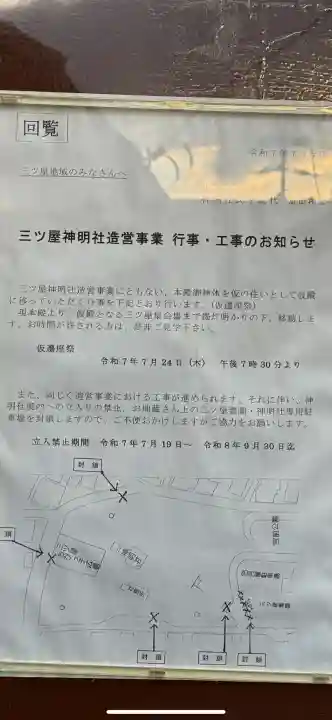 回覧
三ツ屋地域のみなさんへ
三ツ屋神明社造営事業 行事・工事のお知らせ
三ツ屋神明社造営事業にともない、本殿御神体を仮の住いとして仮殿
に移っていただく行事を下記とおり行います。（仮遷座祭）
現本殿より 仮殿となる三ツ屋集会場まで提灯明かりの下、移動しま
す。お時間が許される方は、是非ご見学下さい。
仮遷座祭
令和７年７月24日（木） 午後７時30分より
また、同じく造営事業における工事が進められます。それに伴い、神
明社境内への立入りの禁止、お地蔵さん上の三ツ屋農園・神明社専用駐
車場を封鎖しますので、ご不便おかけしますがご協力をお願いします。
立入禁止期間 令和７年７月19日～ 令和８年９月30日迄
封鎖
封鎖
封鎖
封鎖
封鎖